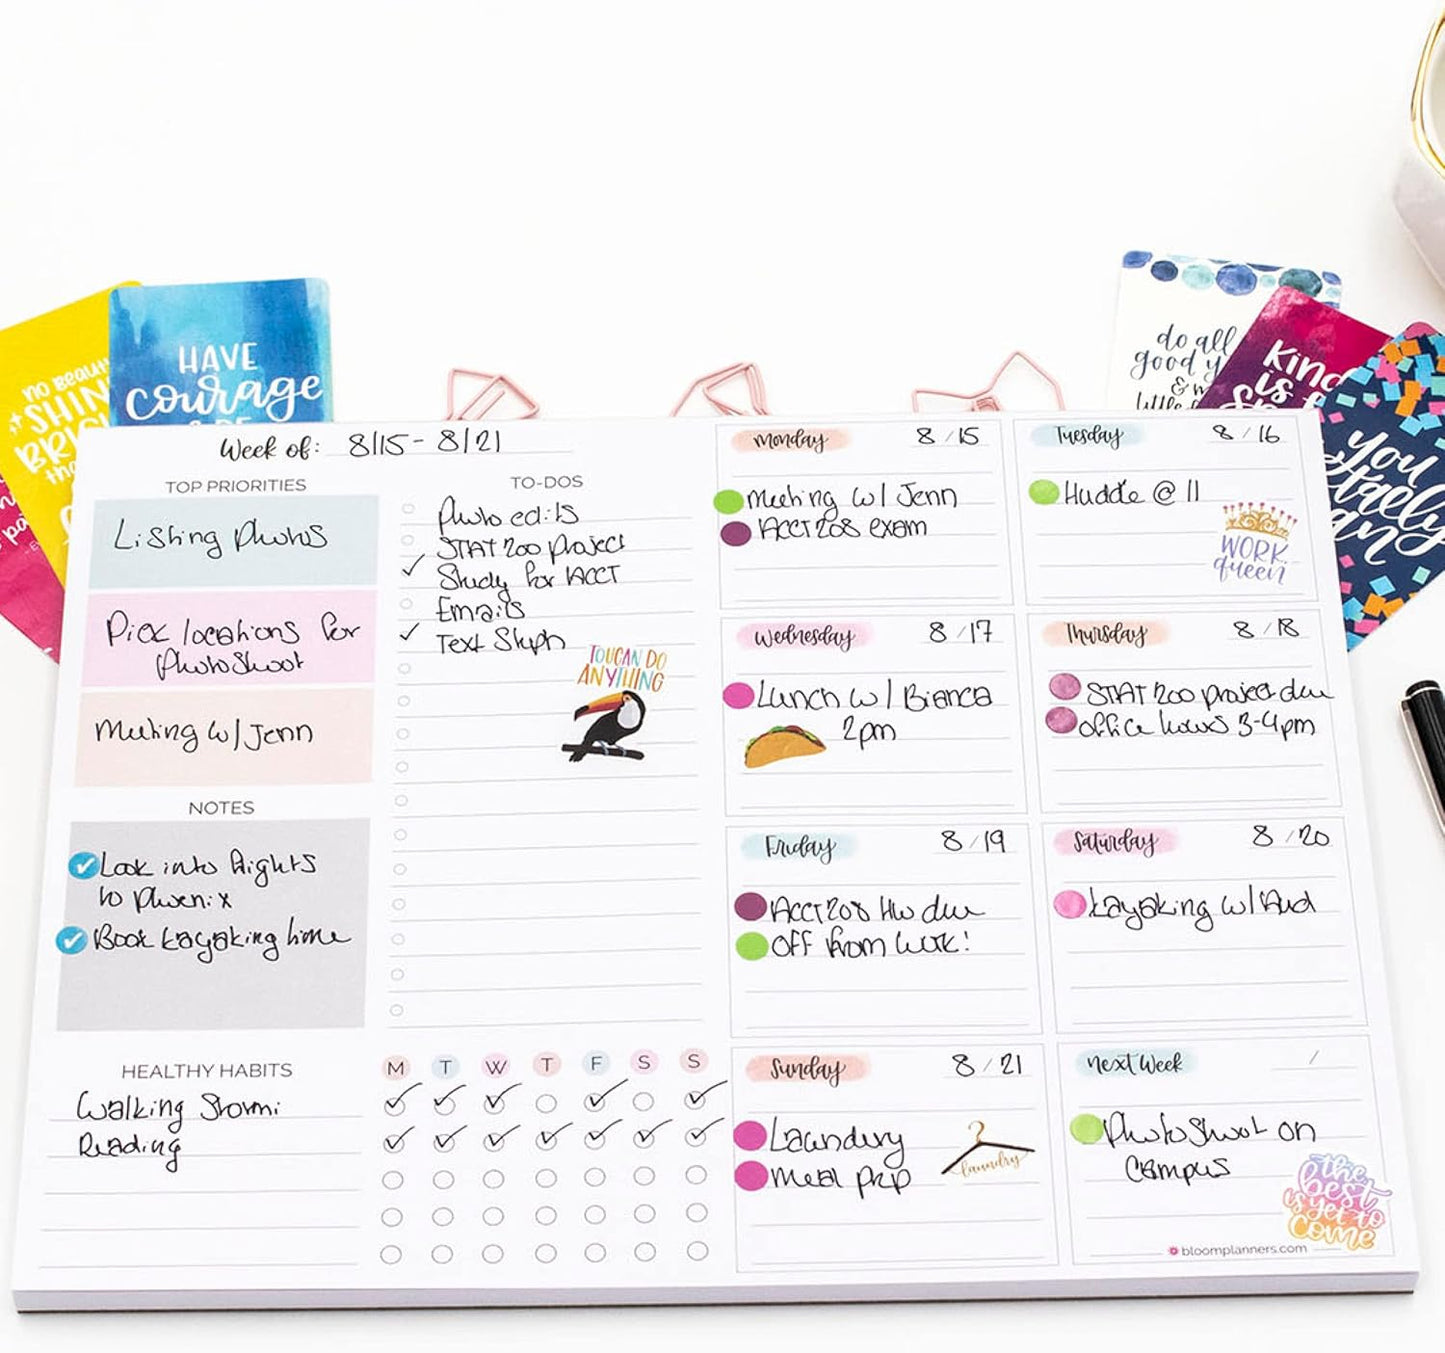 NO BEAUTY
SHIN
BRIG
tha
HAVE
courage
& BE
do all
good y
& w
little
Kind
is f
You
totally
can
Week of: 8/15 - 8/21
TOP PRIORITIES
Listing Photos
Pick locations for
Photoshoot
Meeting w/ Jenn
NOTES
Look into flights
to Phoenix
Book kayaking time
HEALTHY HABITS
Walking Stormi
Reading
TO-DOS
Photo edits
STAT 200 project
Study for ACCT
Emails
Text Steph
TOUCAN DO
ANYTHING
M T W T F S S
Monday 8/15
Meeting w/ Jenn
ACCT 208 exam
Tuesday 8/16
Huddle @ 11
WORK
queen
Wednesday 8/17
Lunch w/ Bianca
2pm
Thursday 8/18
STAT 200 project due
office hours 3-4pm
Friday 8/19
ACCT 208 HW due
OFF from work!
Saturday 8/20
kayaking w/ Aud
Sunday 8/21
Laundry
Meal prep
laundry
Next Week /
Photoshoot on
Campus
the
best
is yet to
come
bloomplanners.com